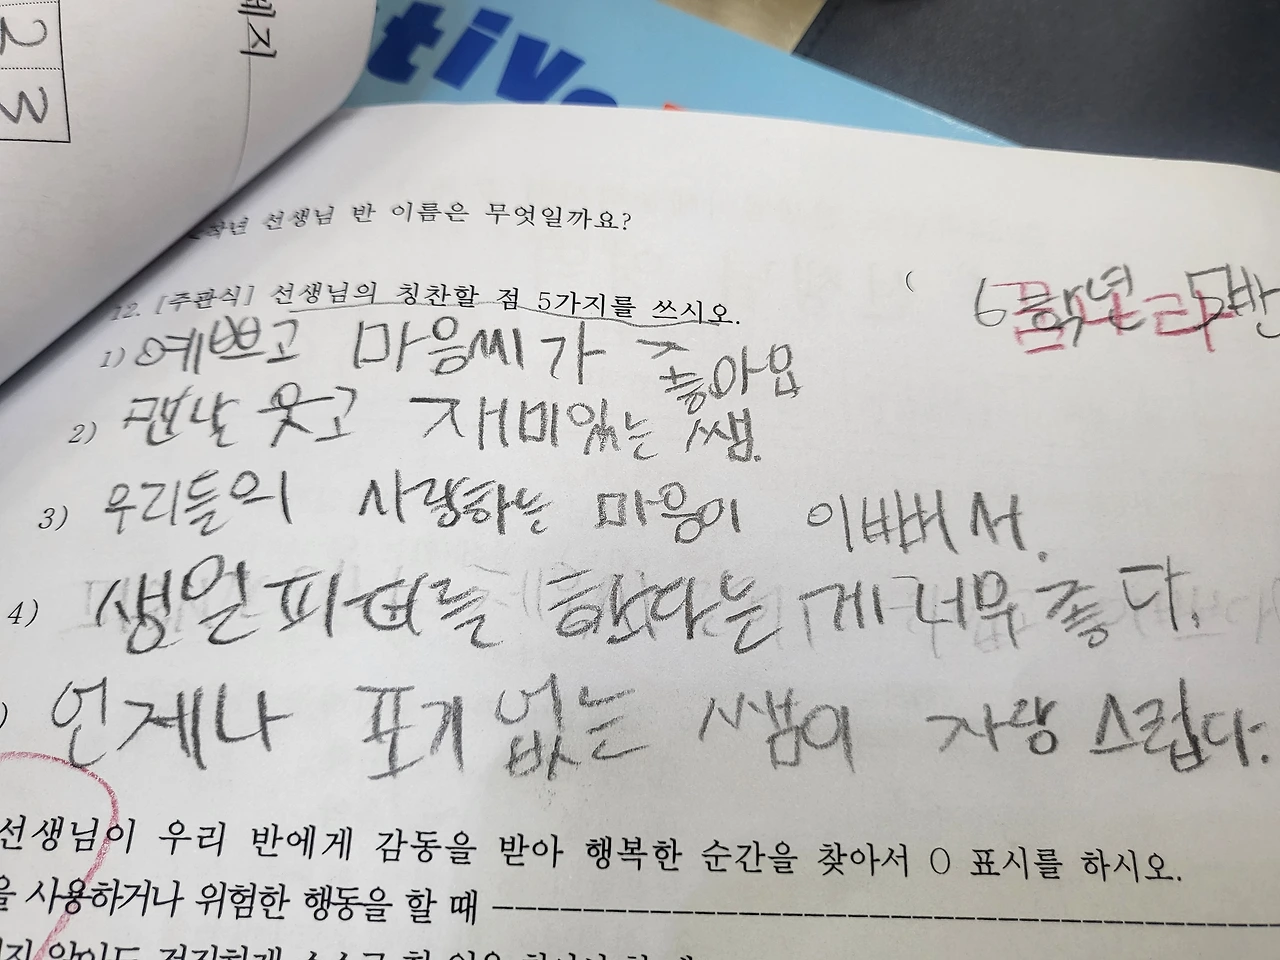 예지
2
3
tive
학년 선생님 반 이름은 무엇일까요?
( 6학년 반
12. [주관식] 선생님의 칭찬할 점 5가지를 쓰시오.
1) 예쁘고 마음씨가 좋아요
2) 맨날 웃고 재미있는 쌤.
3) 우리들의 사랑하는 마음이 이뻐서.
4) 생일 피티를 한다는 게 너무 좋다.
) 언제나 포기 없는 쌤이 자랑스럽다.
선생님이 우리 반에게 감동을 받아 행복한 순간을 찾아서 O 표시를 하시오.
을 사용하거나 위험한 행동을 할 때